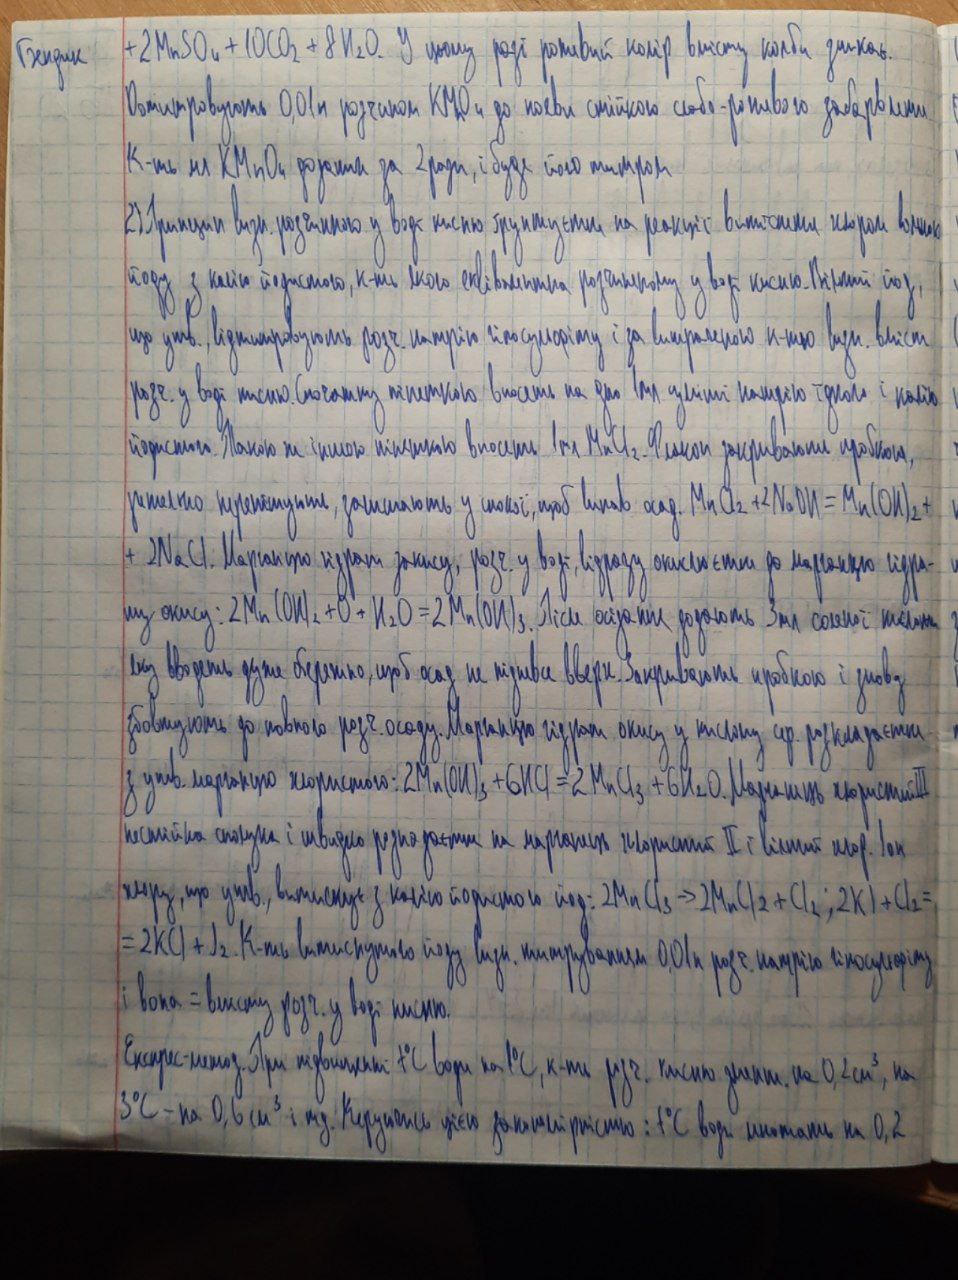 Бендик
+2MnSO₄+10CO₂+8H₂O. У цьому разі рожевий колір вмісту колби зникає.
Дотитровують 0,01н розчином KMnO₄ до появи стійкого слабо-рожевого забарвлення
К-ть мл KMnO₄ доданих за 2 рази, і буде його титром
2) Принцип визн. розчиненого у воді кисню ґрунтується на реакції витіснення хлором
йоду з калію йодистого, к-ть якого еквівалентна розчиненому у воді кисню. Вільний йод,
що утв., відтитровують розч. натрію гіпосульфіту і за витраченою к-тю визн. вміст
розч. у воді кисню. Спочатку піпеткою вносять на дно 1мл суміші натрію їдкого і калію
йодистого. Такою ж іншою піпеткою вносять 1мл MnCl₂. Флакон закривають пробкою,
ретельно перемішують, залишають у спокої, щоб випав осад. MnCl₂+2NaOH=Mn(OH)₂+
+ 2NaCl. Марганцю гідрат закису, розч. у воді, відразу окислюється до марганцю гідра-
ту окису: 2Mn(OH)₂+O+H₂O=2Mn(OH)₃. Після осідання додають 3мл соляної кислоти
яку вводять дуже обережно, щоб осад не піднявся вверх. Закривають пробкою і знову
збовтують до повного розч. осаду. Марганцю гідрат окису у кислому сер. розкладається
з утв. марганцю хлористого: 2Mn(OH)₃+6HCl=2MnCl₃+6H₂O. Марганець хлористий III
нестійка сполука і швидко розпадається на марганець хлористий II і вільний хлор. Іон
хлору, що утв., витискує з калію йодистого йод: 2MnCl₃→2MnCl₂+Cl₂; 2KJ+Cl₂=
=2KCl+J₂. К-ть витиснутого йоду визн. титруванням 0,01н розч. натрію гіпосульфіту
і вона = вмісту розч. у воді кисню.
Експрес-метод. При підвищенні t°C води на 1°C, к-ть розч. кисню зменш. на 0,2см³, на
3°C – на 0,6см³ і тд. Керуючись цією закономірністю: t°C води множать на 0,2